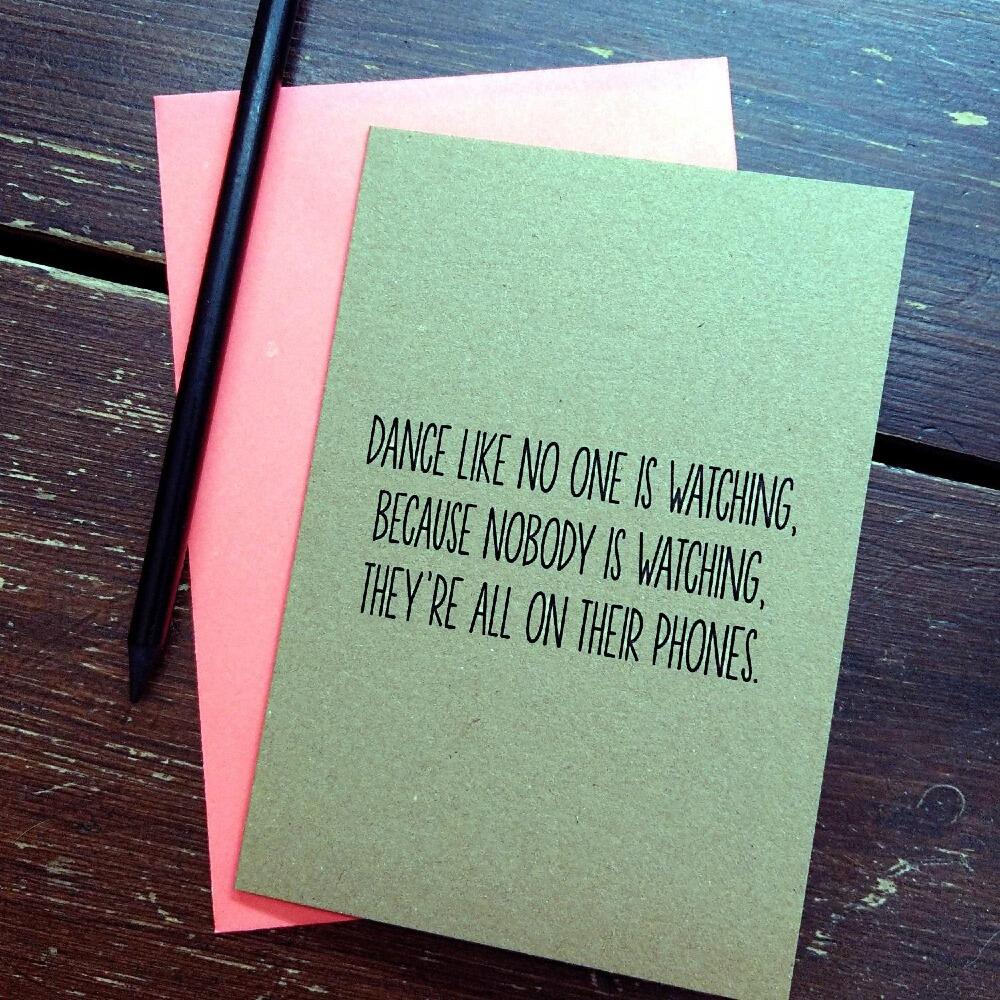 DANCE LIKE NO ONE IS WATCHING,
BECAUSE NOBODY IS WATCHING,
THEY'RE ALL ON THEIR PHONES.